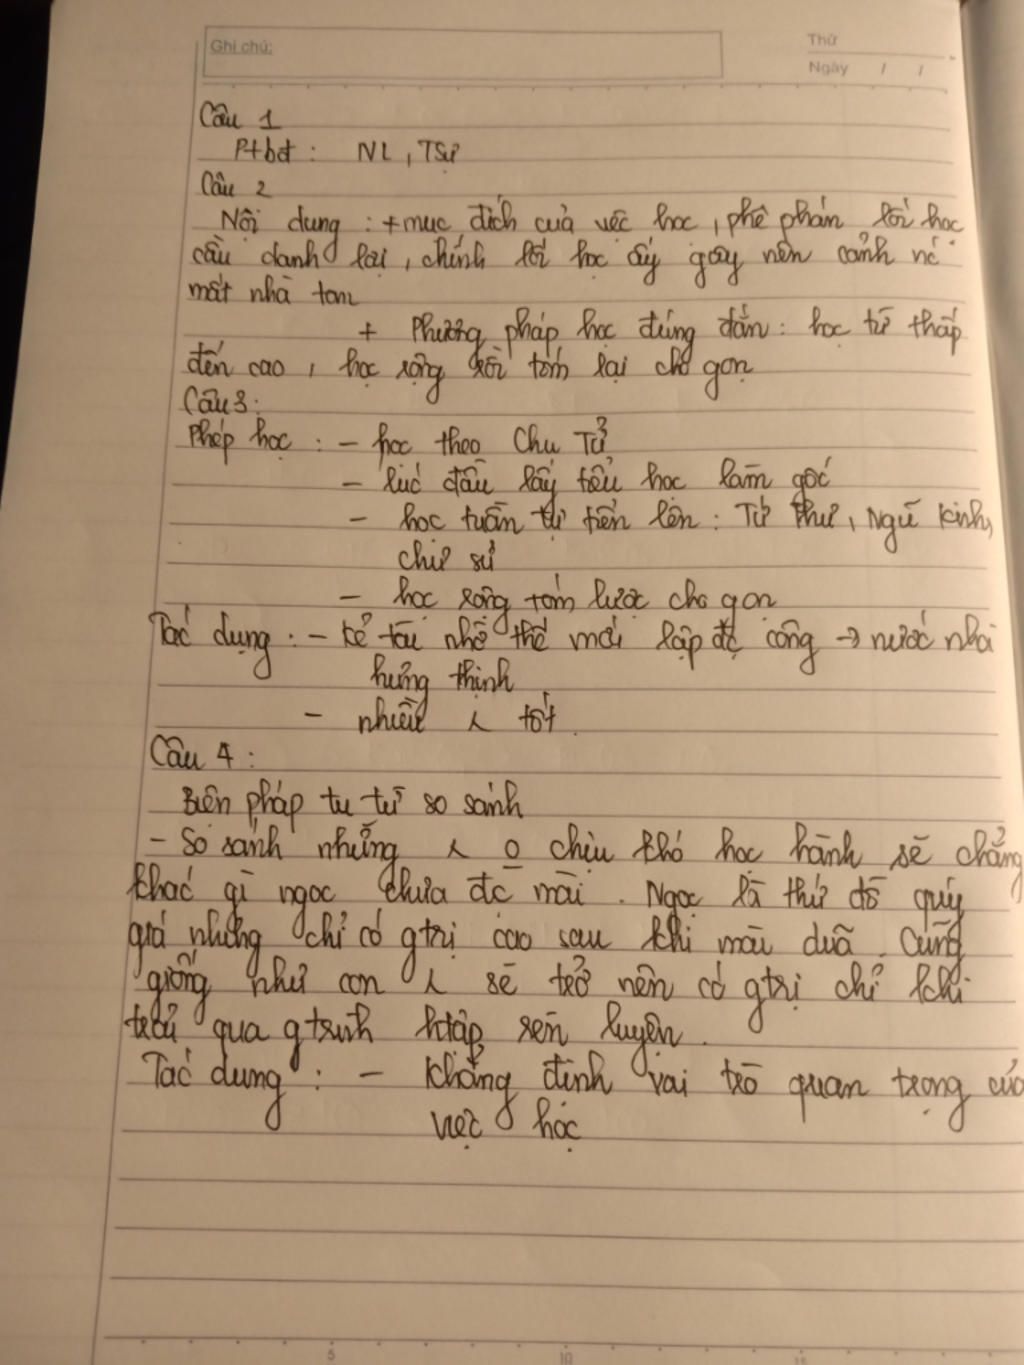 Ghi chú:
Thứ
Ngày / /
Câu 1
Ptbđ : NL, Tsự
Câu 2
Nội dung : + mục đích của việc học, phê phán lối học
cầu danh lợi, chính lối học ấy gây nên cảnh nc
mất nhà tan
+ Phương pháp học đúng đắn : học từ thấp
đến cao, học rộng rồi tóm lại cho gọn
Câu 3 :
Phép học : - học theo Chu Tử
- lúc đầu lấy tiểu học làm gốc
- học tuần tự tiến lên : Tứ Thư, Ngũ Kinh,
chư sử
- học rộng tóm lược cho gọn
Tác dụng : - kẻ tài nhờ thế mới lập đc công → nước nhà
hưng thịnh
- nhiều ng tốt
Câu 4 :
Biện pháp tu từ so sánh
- So sánh những ng o chịu khó học hành sẽ chẳng
khác gì ngọc chưa đc mài. Ngọc là thứ đồ quý
giá nhưng chỉ có gtrị cao sau khi mài dũa. Cũng
giống như con ng sẽ trở nên có gtrị chỉ khi
trải qua qtrình htập, rèn luyện.
Tác dụng : - Khẳng định vai trò quan trọng của
việc học
5
10
15